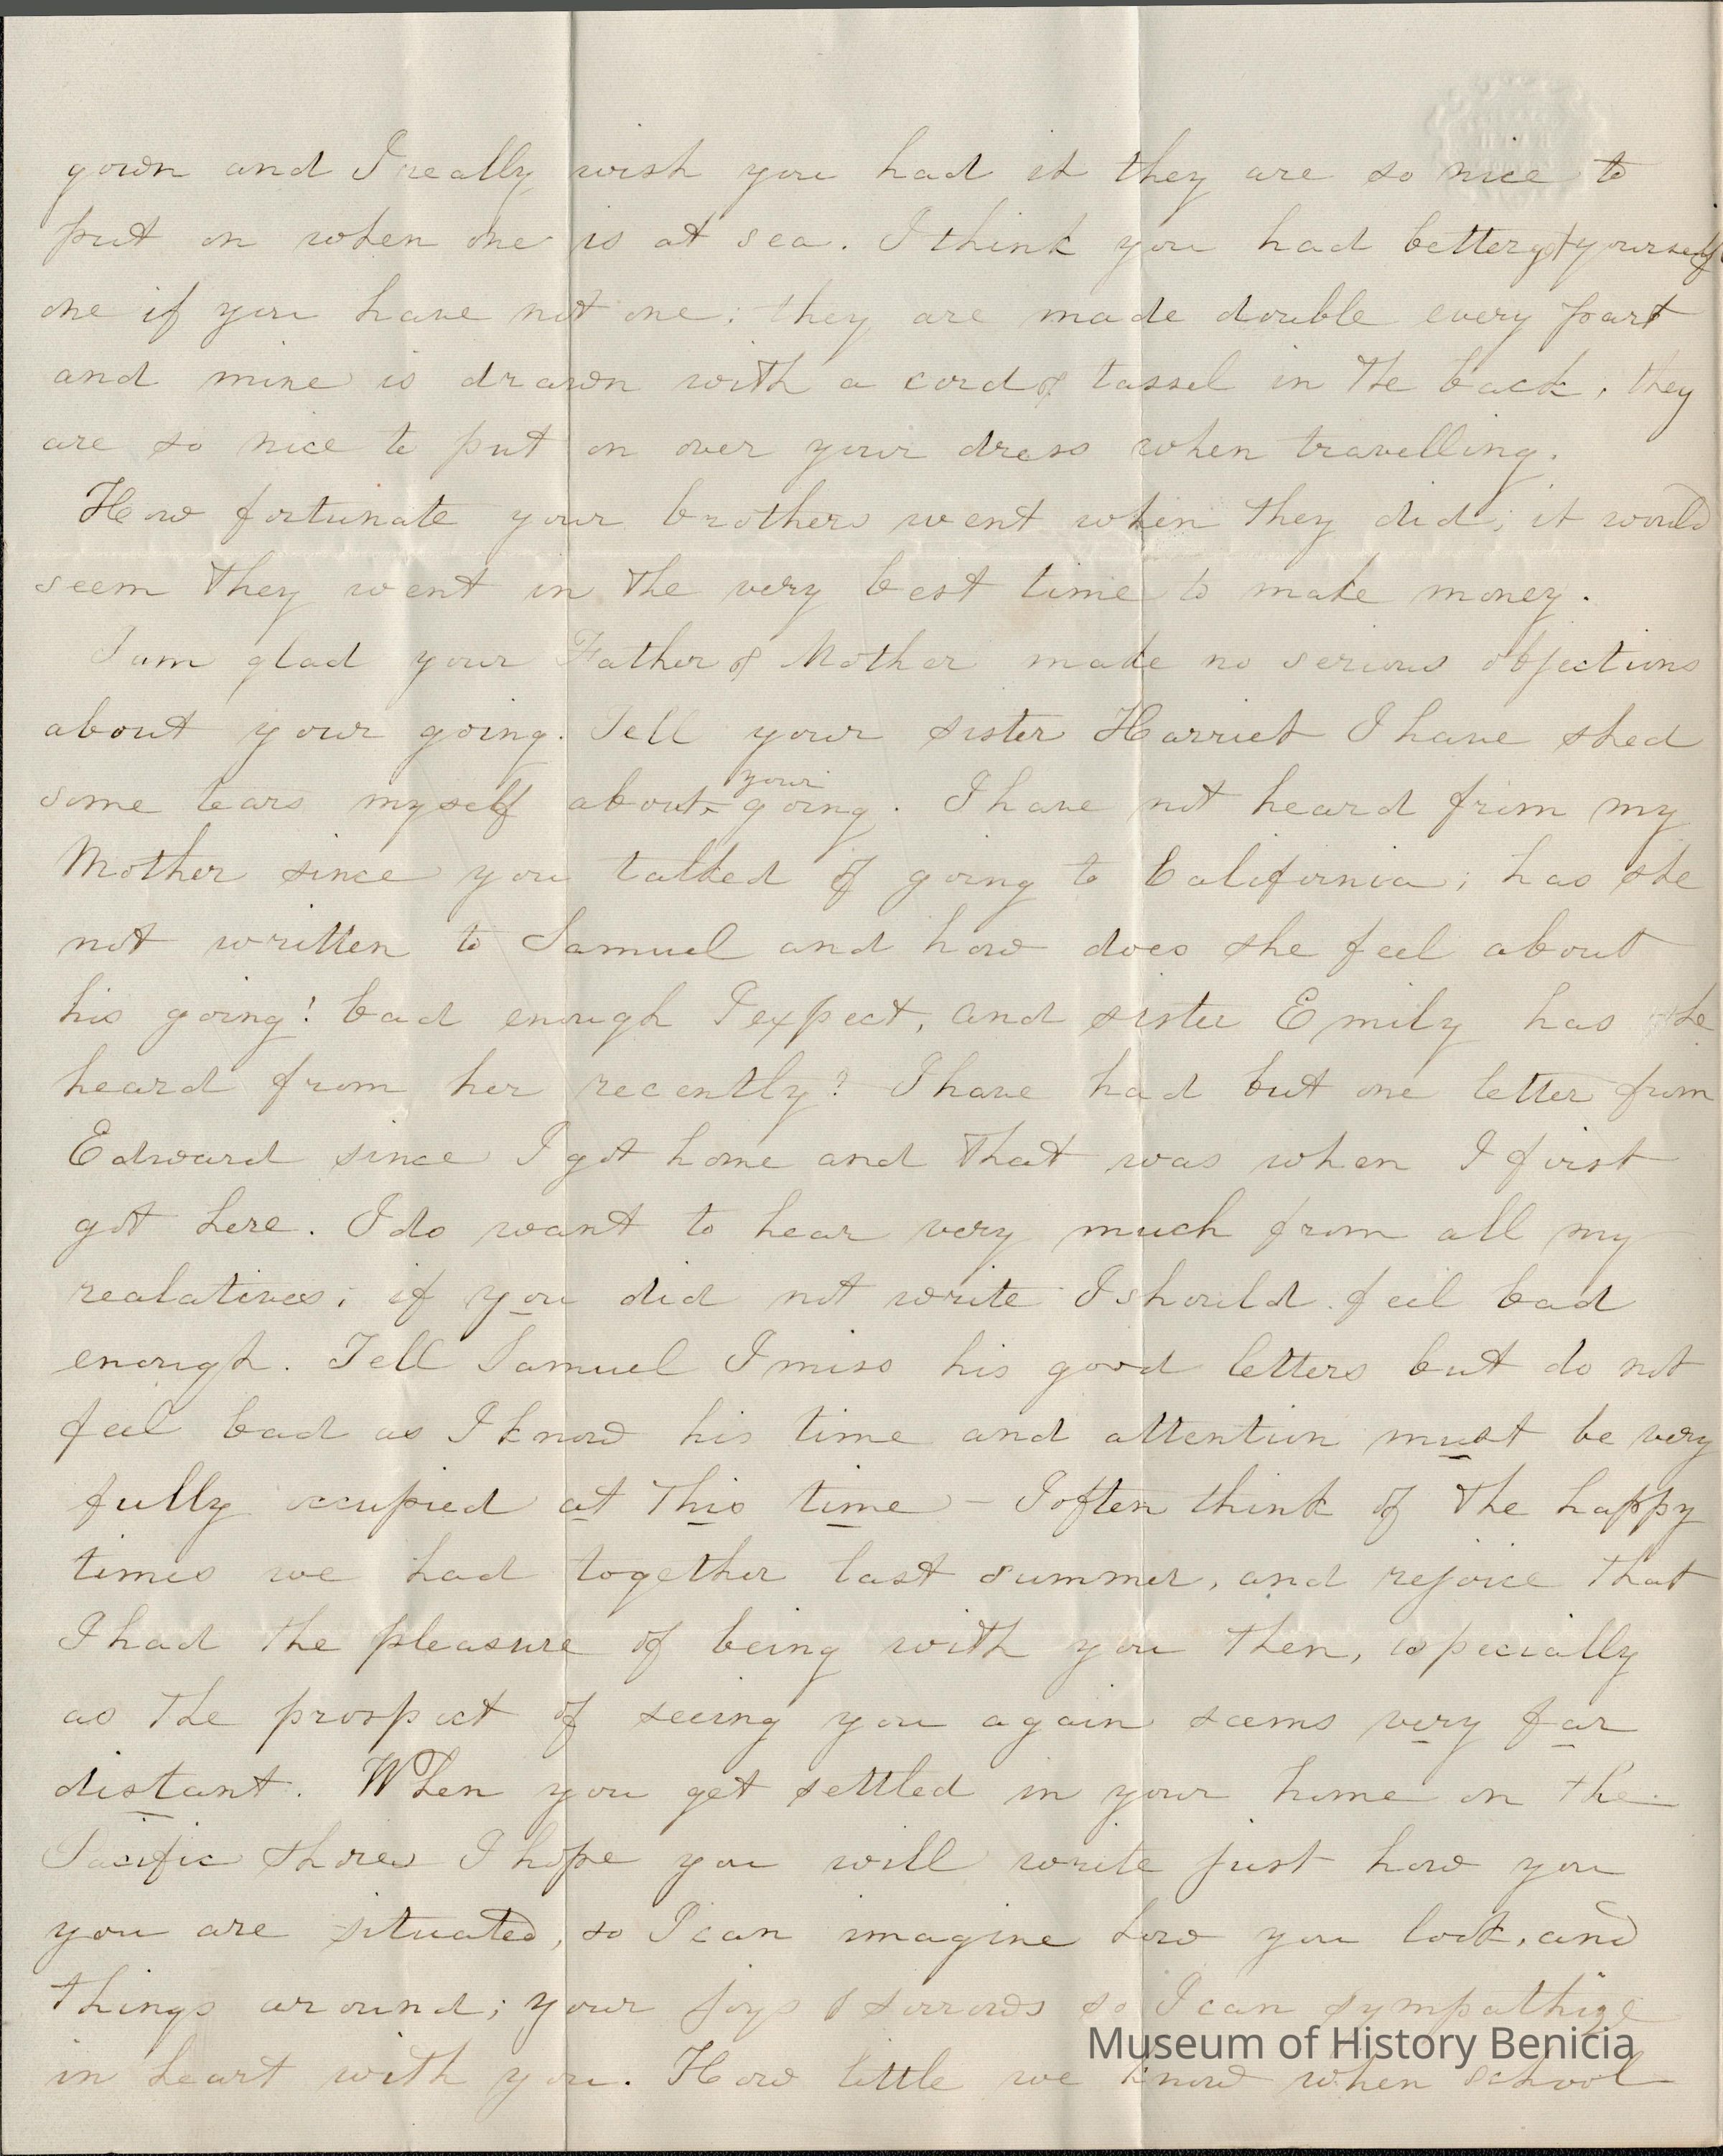 gown and I really wish you had it they are so nice to
put on when one is at sea. I think you had better get yourself
one if you have not one; they are made double every part
and mine is drawn with a cord & tassel in the back, they
are so nice to put on over your dress when travelling.
How fortunate your brothers went when they did; it would
seem they went in the very best time to make money.
I am glad your Father & Mother make no serious objections
about your going. Tell your sister Harriet I have shed
some tears myself about ^ your going. I have not heard from my
Mother since you talked of going to California; has she
not written to Samuel and how does she feel about
his going! bad enough I expect, and sister Emily has she
heard from her recently? I have had but one letter from
Edward since I got home and that was when I first
got here. I do want to hear very much from all my
realatives; if you did not write I should feel bad
enough. Tell Samuel I miss his good letters but do not
feel bad as I know his time and attention must be very
fully occupied at this time – I often think of the happy
times we had together last summer, and rejoice that
I had the pleasure of being with you then, especially
as the prospect of seeing you again seems very far
distant. When you get settled in your home on the
Pacific shores I hope you will write just how you
you are situated, so I can imagine how you look, and
things around; your joys & sorrows so I can sympathize
in heart with you. How little we know when school
Museum of History Benicia